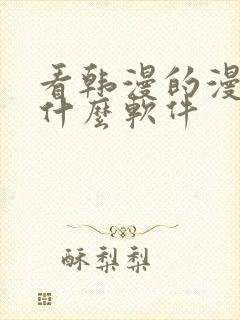 看韩漫的漫
什麼軟件
酥梨梨